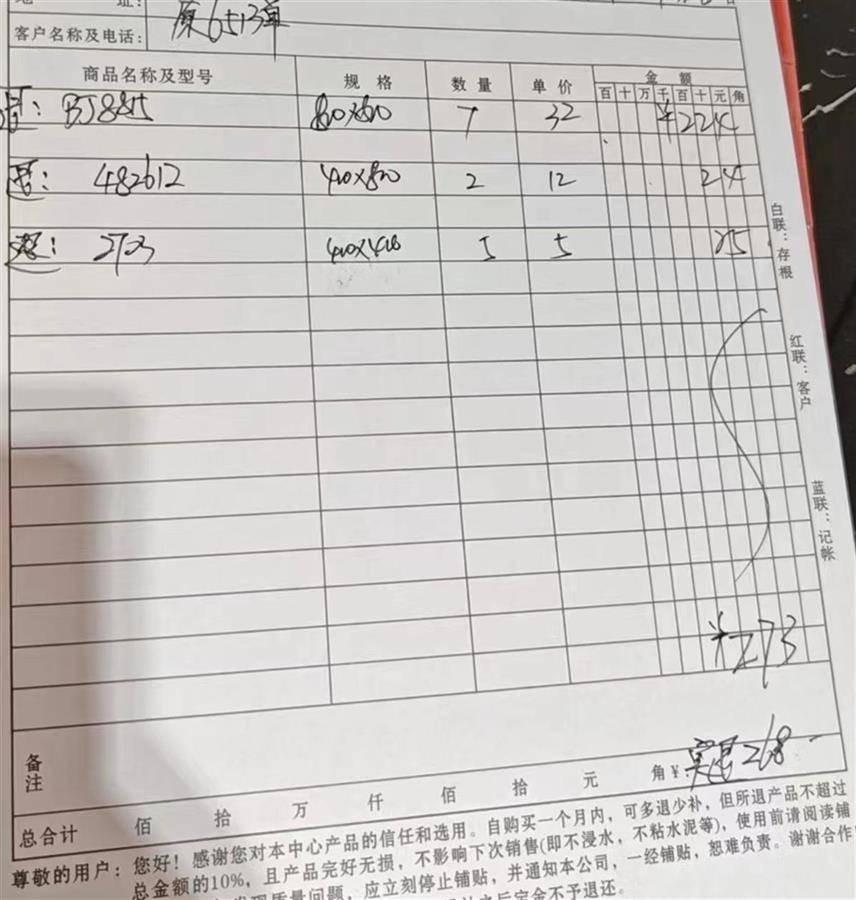 址：
客户名称及电话： 原6513单
商品名称及型号 规格 数量 单价 金额
百 十 万 千 百 十 元 角
退： BJ8815 800x800 7 32 ¥224
退： 482612 400x800 2 12 24
退： 2723 400x400 5 5 25
¥273
白联：存根
红联：客户
蓝联：记帐
备注
实退268
总合计 佰 拾 万 仟 佰 拾 元 角 ¥：
尊敬的用户：您好！感谢您对本中心产品的信任和选用。自购买一个月内，可多退少补，但所退产品不超过
总金额的10%，且产品完好无损，不影响下次销售(即不浸水，不粘水泥等)，使用前请阅读铺
质量问题，应立刻停止铺贴，并通知本公司，一经铺贴，恕难负责。谢谢合作！
之后定金不予退还。